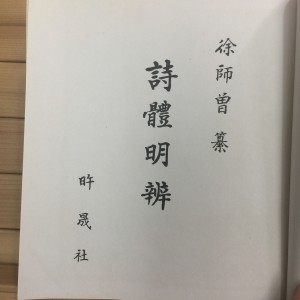 徐師曾 纂
詩體明辨
旿晟社